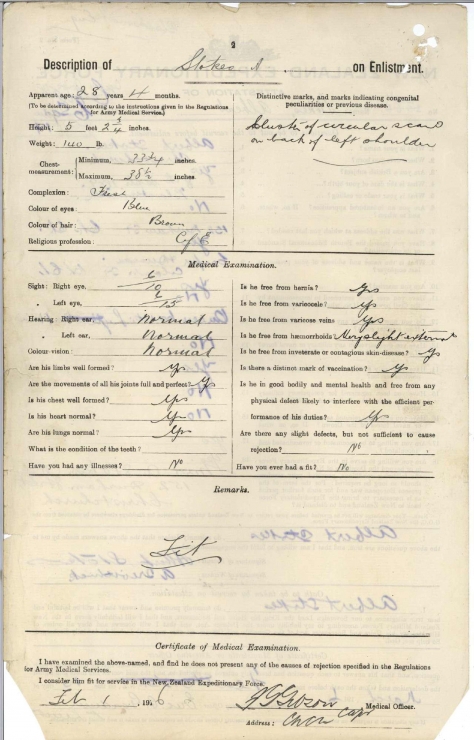 2
Description of Stokes A on Enlistment.
Apparent age: 28 years 4 months.
(To be determined according to the instructions given in the Regulations
for Army Medical Service.)
Height: 5 feet 2 3/4 inches.
Weight: 140 lb.
Chest-measurement: Minimum, 33 3/4 inches.
Maximum, 35 1/2 inches.
Complexion: Fresh
Colour of eyes: Blue
Colour of hair: Brown
Religious profession: C of E
Distinctive marks, and marks indicating congenital
peculiarities or previous disease.
Cluster of circular scars
on back of left shoulder
Medical Examination.
Sight: Right eye, 6
Left eye, 6
Hearing: Right ear, Normal
Left ear, Normal
Colour-vision: Normal
Are his limbs well formed? Yes
Are the movements of all his joints full and perfect? Yes
Is his chest well formed? Yes
Is his heart normal? Yes
Are his lungs normal? Yes
What is the condition of the teeth?
Have you had any illnesses? No
Is he free from hernia? Yes
Is he free from varicocele? Yes
Is he free from varicose veins Yes
Is he free from hæmorrhoids? Very slight external
Is he free from inveterate or contagious skin-disease? Yes
Is there a distinct mark of vaccination? Yes
Is he in good bodily and mental health and free from any
physical defect likely to interfere with the efficient per-
formance of his duties? Yes
Are there any slight defects, but not sufficient to cause
rejection? No
Have you ever had a fit? No
Remarks.
Fit
Certificate of Medical Examination.
I have examined the above-named, and find he does not present any of the causes of rejection specified in the Regulations
for Army Medical Services.
I consider him fit for service in the New Zealand Expeditionary Force.
Feb 1 1916
Medical Officer.
Address: Capt